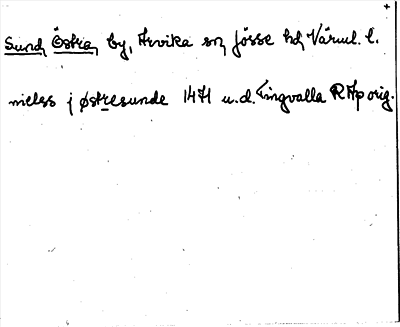 Sund, Östra, by, Arvika sn, Jösse hd, Värml. l.
nielss j østresunde 1471 u.d. Tingvalla RAp orig.